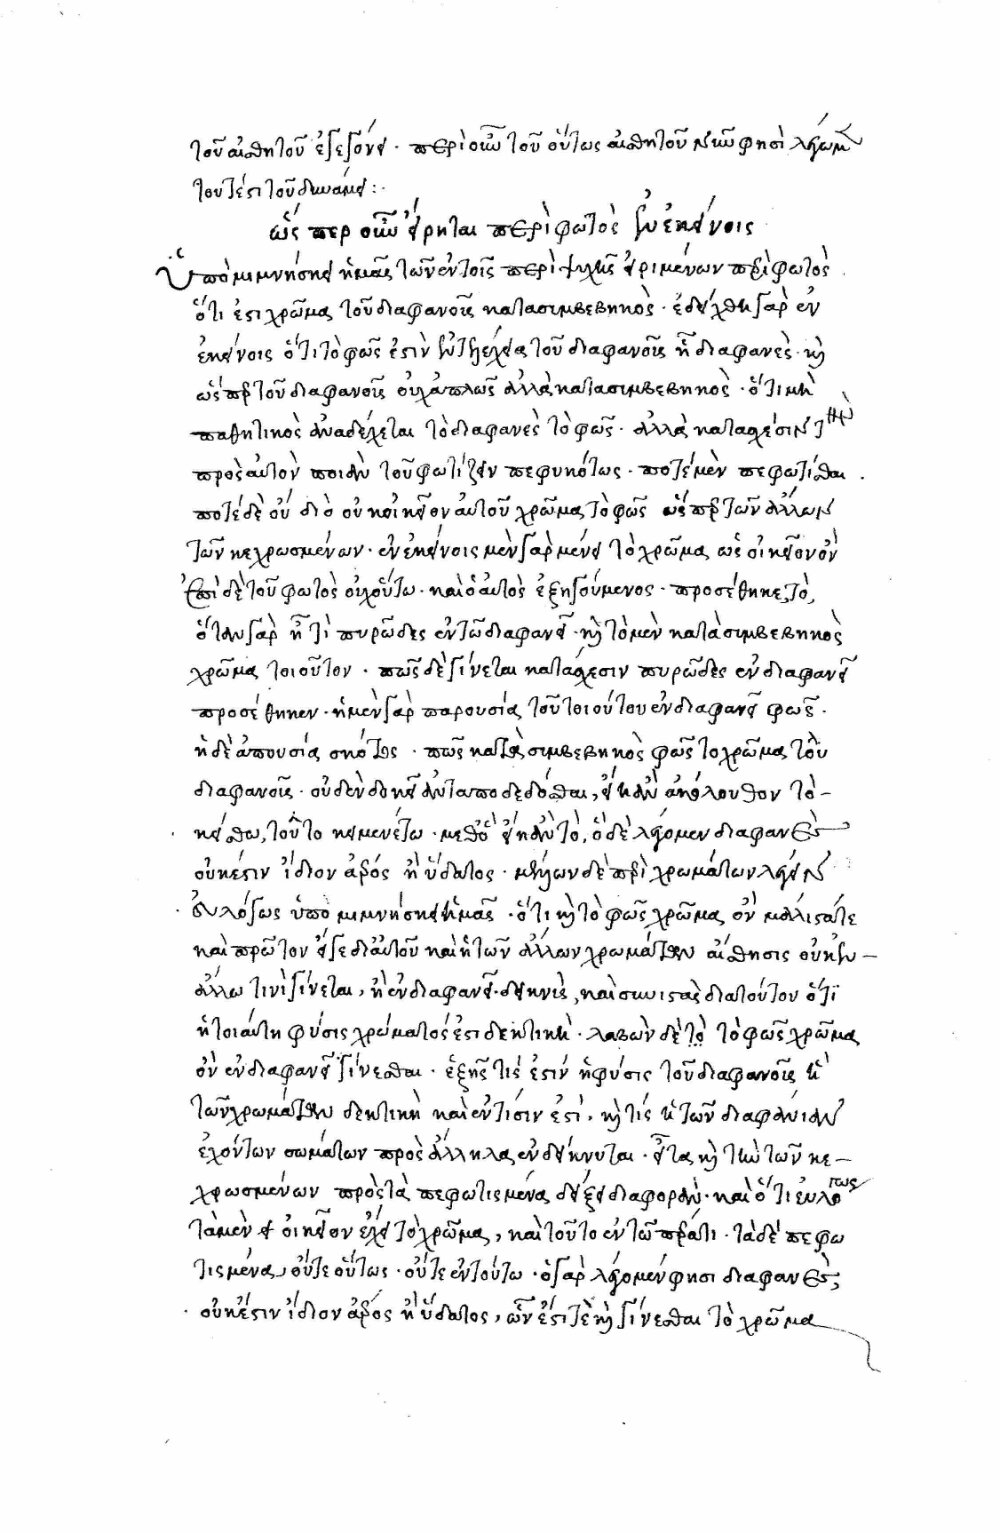 τοῦ αἰσθητοῦ ἐγεγόνει · περὶ οὖν τοῦ οὕτως αἰσθητοῦ νῦν φησὶ λέγων
τουτέστι τοῦ δυνάμει :·
ὥσπερ οὖν εἴρηται περὶ φωτὸς ἐν ἐκείνοις
Ὑπομιμνήσκει ἡμᾶς τῶν ἐν τοῖς περὶ ψυχῆς εἰρημένων περὶ φωτὸς
ὅτι ἐστὶ χρῶμα τοῦ διαφανοῦς κατὰ συμβεβηκός · ἐδείχθη γὰρ ἐν
ἐκείνοις ὅτι τὸ φῶς ἐστὶν ἐντελέχεια τοῦ διαφανοῦς ᾗ διαφανές · καὶ
ὥσπερ τοῦ διαφανοῦς οὐχ ἁπλῶς ἀλλὰ κατὰ συμβεβηκός · ὅτι μὴ
παθητικῶς ἀναδέχεται τὸ διαφανὲς τὸ φῶς · ἀλλὰ κατὰ σχέσιν τὴν
πρὸς αὐτὸν ποιὰν τοῦ φωτίζειν πεφυκότως · ποτὲ μὲν πεφώτισθαι
ποτὲ δὲ οὔ διὸ οὐκ οἰκεῖον αὐτοῦ χρῶμα τὸ φῶς ὥσπερ τῶν ἄλλων
τῶν κεχρωσμένων · ἐν ἐκείνοις μὲν γὰρ μένει τὸ χρῶμα ὡς οἰκεῖον ὂν
ἐπὶ δὲ τοῦ φωτὸς οὐχ οὕτω · καὶ ὁ αὐτὸς ἐξηγούμενος · προσέθηκε τὸ,
ὅταν γὰρ ᾖ τὶ πυρῶδες ἐν τῷ διαφανεῖ · καὶ τὸ μὲν κατὰ συμβεβηκὸς
χρῶμα τοιοῦτον · πῶς δὲ γίνεται κατὰ σχέσιν πυρῶδες ἐν διαφανεῖ
προσέθηκεν · ἡ μὲν γὰρ παρουσία τοῦ τοιούτου ἐν διαφανεῖ φῶς ·
ἡ δὲ ἀπουσία σκότος · πῶς κατὰ συμβεβηκὸς φῶς τὸ χρῶμα τοῦ
διαφανοῦς · οὐδὲν δοκεῖ ἀνταποδεδόσθαι, εἴη ἂν ἀκόλουθον τὸ-
κείσθω, τοῦτο κείμενέτω · μεθ' ὃ εἴη ἂν τὸ, ὃ δὲ λέγομεν διαφανὲς
οὐκ ἔστιν ἴδιον ἀέρος ἢ ὕδατος · μέλλων δὲ περὶ χρωμάτων λέγειν
εὐλόγως ὑπομιμνήσκει ἡμᾶς · ὅτι καὶ τὸ φῶς χρῶμα ὂν μάλιστά τε
καὶ πρῶτον εἴγε δι' αὐτοῦ καὶ ἡ τῶν ἄλλων χρωμάτων αἴσθησις οὐκ ἐν-
ἄλλω τινὶ γίνεται, ἢ ἐν διαφανεῖ · δεικνὺς, καὶ συνιστὰς διὰ τούτου ὅτι
ἡ τοιαύτη φύσις χρώματός ἐστι δεκτική · λαβὼν δὲ τὸ τὸ φῶς χρῶμα
ὂν ἐν διαφανεῖ γίνεσθαι · ἑξῆς τίς ἐστιν ἡ φύσις τοῦ διαφανοῦς ἡ
τῶν χρωμάτων δεκτικὴ καὶ ἐν τίσιν ἐστὶ, καὶ τίς ἡ τῶν διαφάνειαν
ἐχόντων σωμάτων πρὸς ἄλληλα ἐνδείκνυται · εἶτα καὶ τὴν τῶν κε-
χρωσμένων πρὸς τὰ πεφωτισμένα δείξει διαφοράν · καὶ ὅτι εὐλόγως
τὰ μὲν οἰκεῖον ἔχει τὸ χρῶμα, καὶ τοῦτο ἐν τῷ πέρατι · τὰ δὲ πεφω
τισμένα, οὔτε οὕτως · οὔτε ἐν τούτω · ὃ γὰρ λέγομεν φησι διαφανὲς,
οὐκ ἔστιν ἴδιον ἀέρος ἢ ὕδατος, ὧν ἐστί τε καὶ γίνεσθαι τὸ χρῶμα